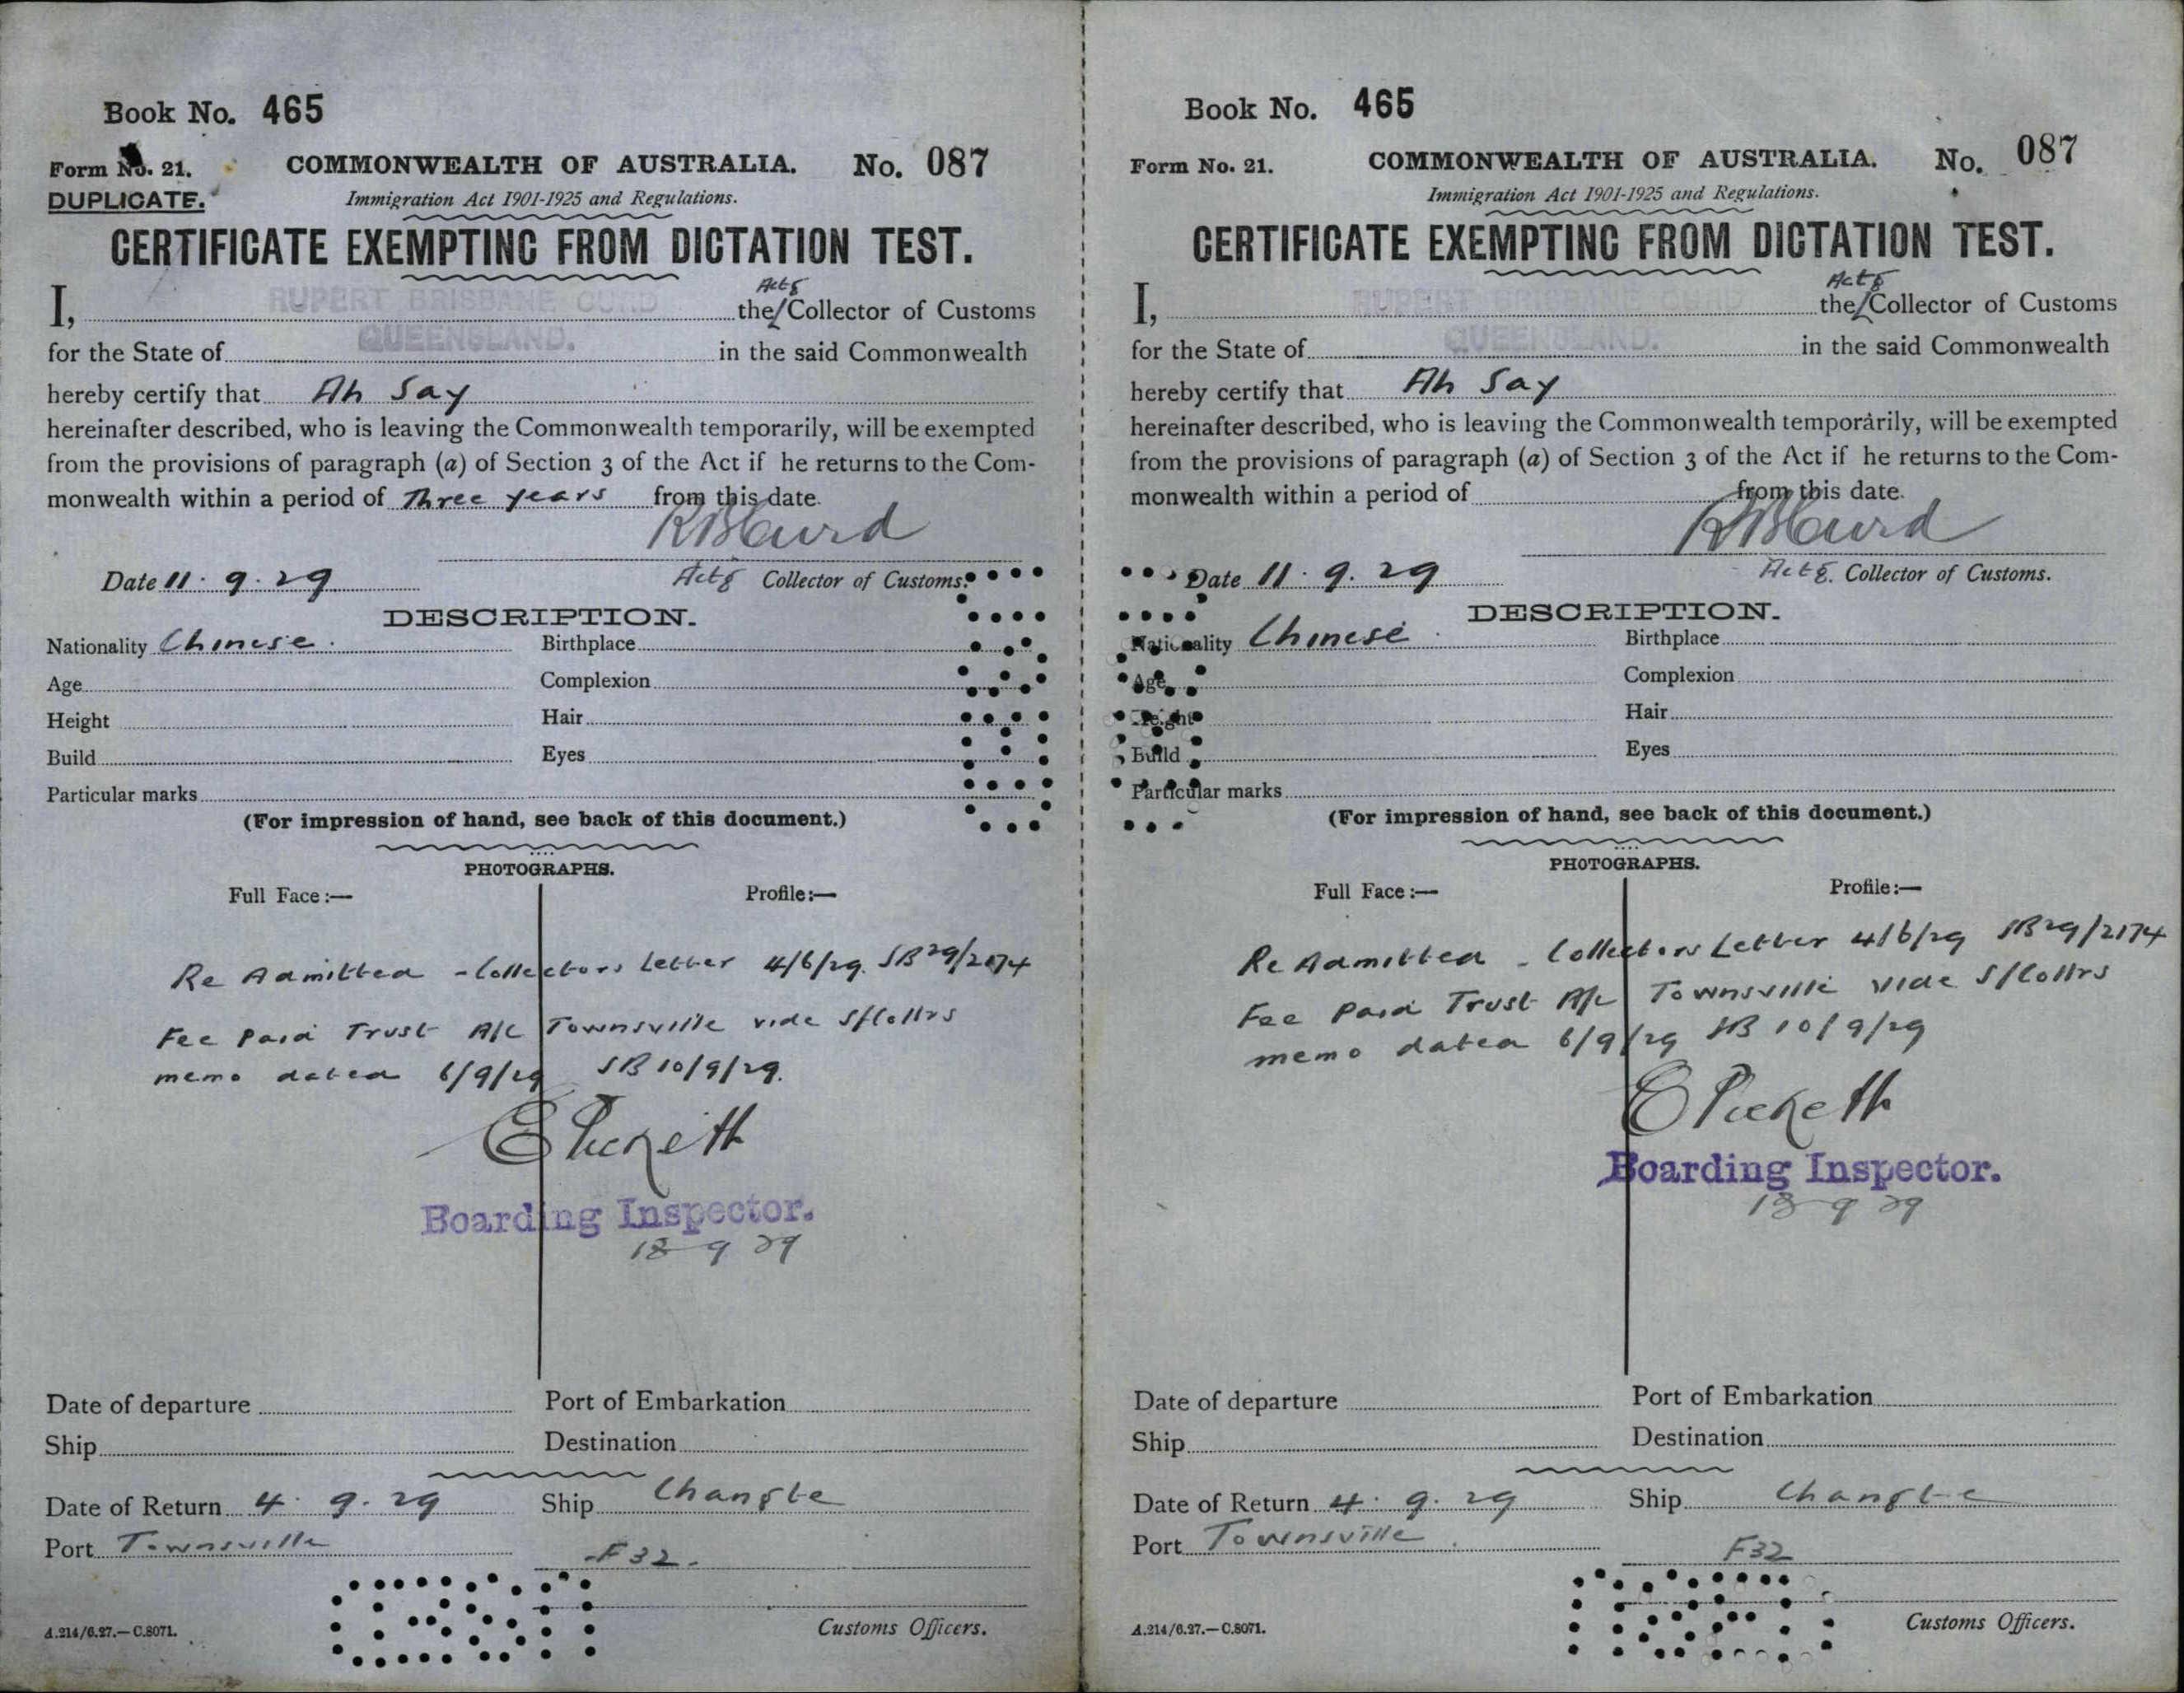 Book No. 465
Form No. 21.
COMMONWEALTH OF AUSTRALIA. No. 087
DUPLICATE.
Immigration Act 1901-1925 and Regulations.
CERTIFICATE EXEMPTING FROM DICTATION TEST.
Actg
I, RUPERT BRISBANE CURD the Collector of Customs
for the State of QUEENSLAND. in the said Commonwealth
hereby certify that Ah Say
hereinafter described, who is leaving the Commonwealth temporarily, will be exempted
from the provisions of paragraph (a) of Section 3 of the Act if he returns to the Com-
monwealth within a period of Three years from this date.
RBCurd
Date 11.9.29 Actg Collector of Customs.
DESCRIPTION.
Nationality Chinese. Birthplace
Age Complexion
Height Hair
Build Eyes
Particular marks
(For impression of hand, see back of this document.)
PHOTOGRAPHS.
Full Face:— Profile:—
Re Admitted - Collectors Letter 4/6/29. SB 29/2174
Fee Paid Trust A/c Townsville vide S/Collrs
memo dated 6/9/29 SB 10/9/29.
E Pickett
Boarding Inspector.
18 9 29
Date of departure Port of Embarkation
Ship Destination
Date of Return 4.9.29 Ship Changte
Port Townsville
F32.
A.214/6.27.—C.8071. Customs Officers.
Book No. 465
Form No. 21. COMMONWEALTH OF AUSTRALIA. No. 087
Immigration Act 1901-1925 and Regulations.
CERTIFICATE EXEMPTING FROM DICTATION TEST.
Actg
I, RUPERT BRISBANE CURD the Collector of Customs
for the State of QUEENSLAND. in the said Commonwealth
hereby certify that Ah Say
hereinafter described, who is leaving the Commonwealth temporarily, will be exempted
from the provisions of paragraph (a) of Section 3 of the Act if he returns to the Com-
monwealth within a period of from this date.
RBCurd
Date 11.9.29 Actg. Collector of Customs.
DESCRIPTION.
Nationality Chinese. Birthplace
Age Complexion
Height Hair
Build Eyes
Particular marks
(For impression of hand, see back of this document.)
PHOTOGRAPHS.
Full Face:— Profile:—
Re Admitted - Collectors Letter 4/6/29 SB 29/2174
Fee Paid Trust A/c Townsville vide S/Collrs
memo dated 6/9/29 SB 10/9/29
E Pickett
Boarding Inspector.
18 9 29
Date of departure Port of Embarkation
Ship Destination
Date of Return 4.9.29 Ship Changte
Port Townsville
F32
A.214/6.27.—C.8071. Customs Officers.